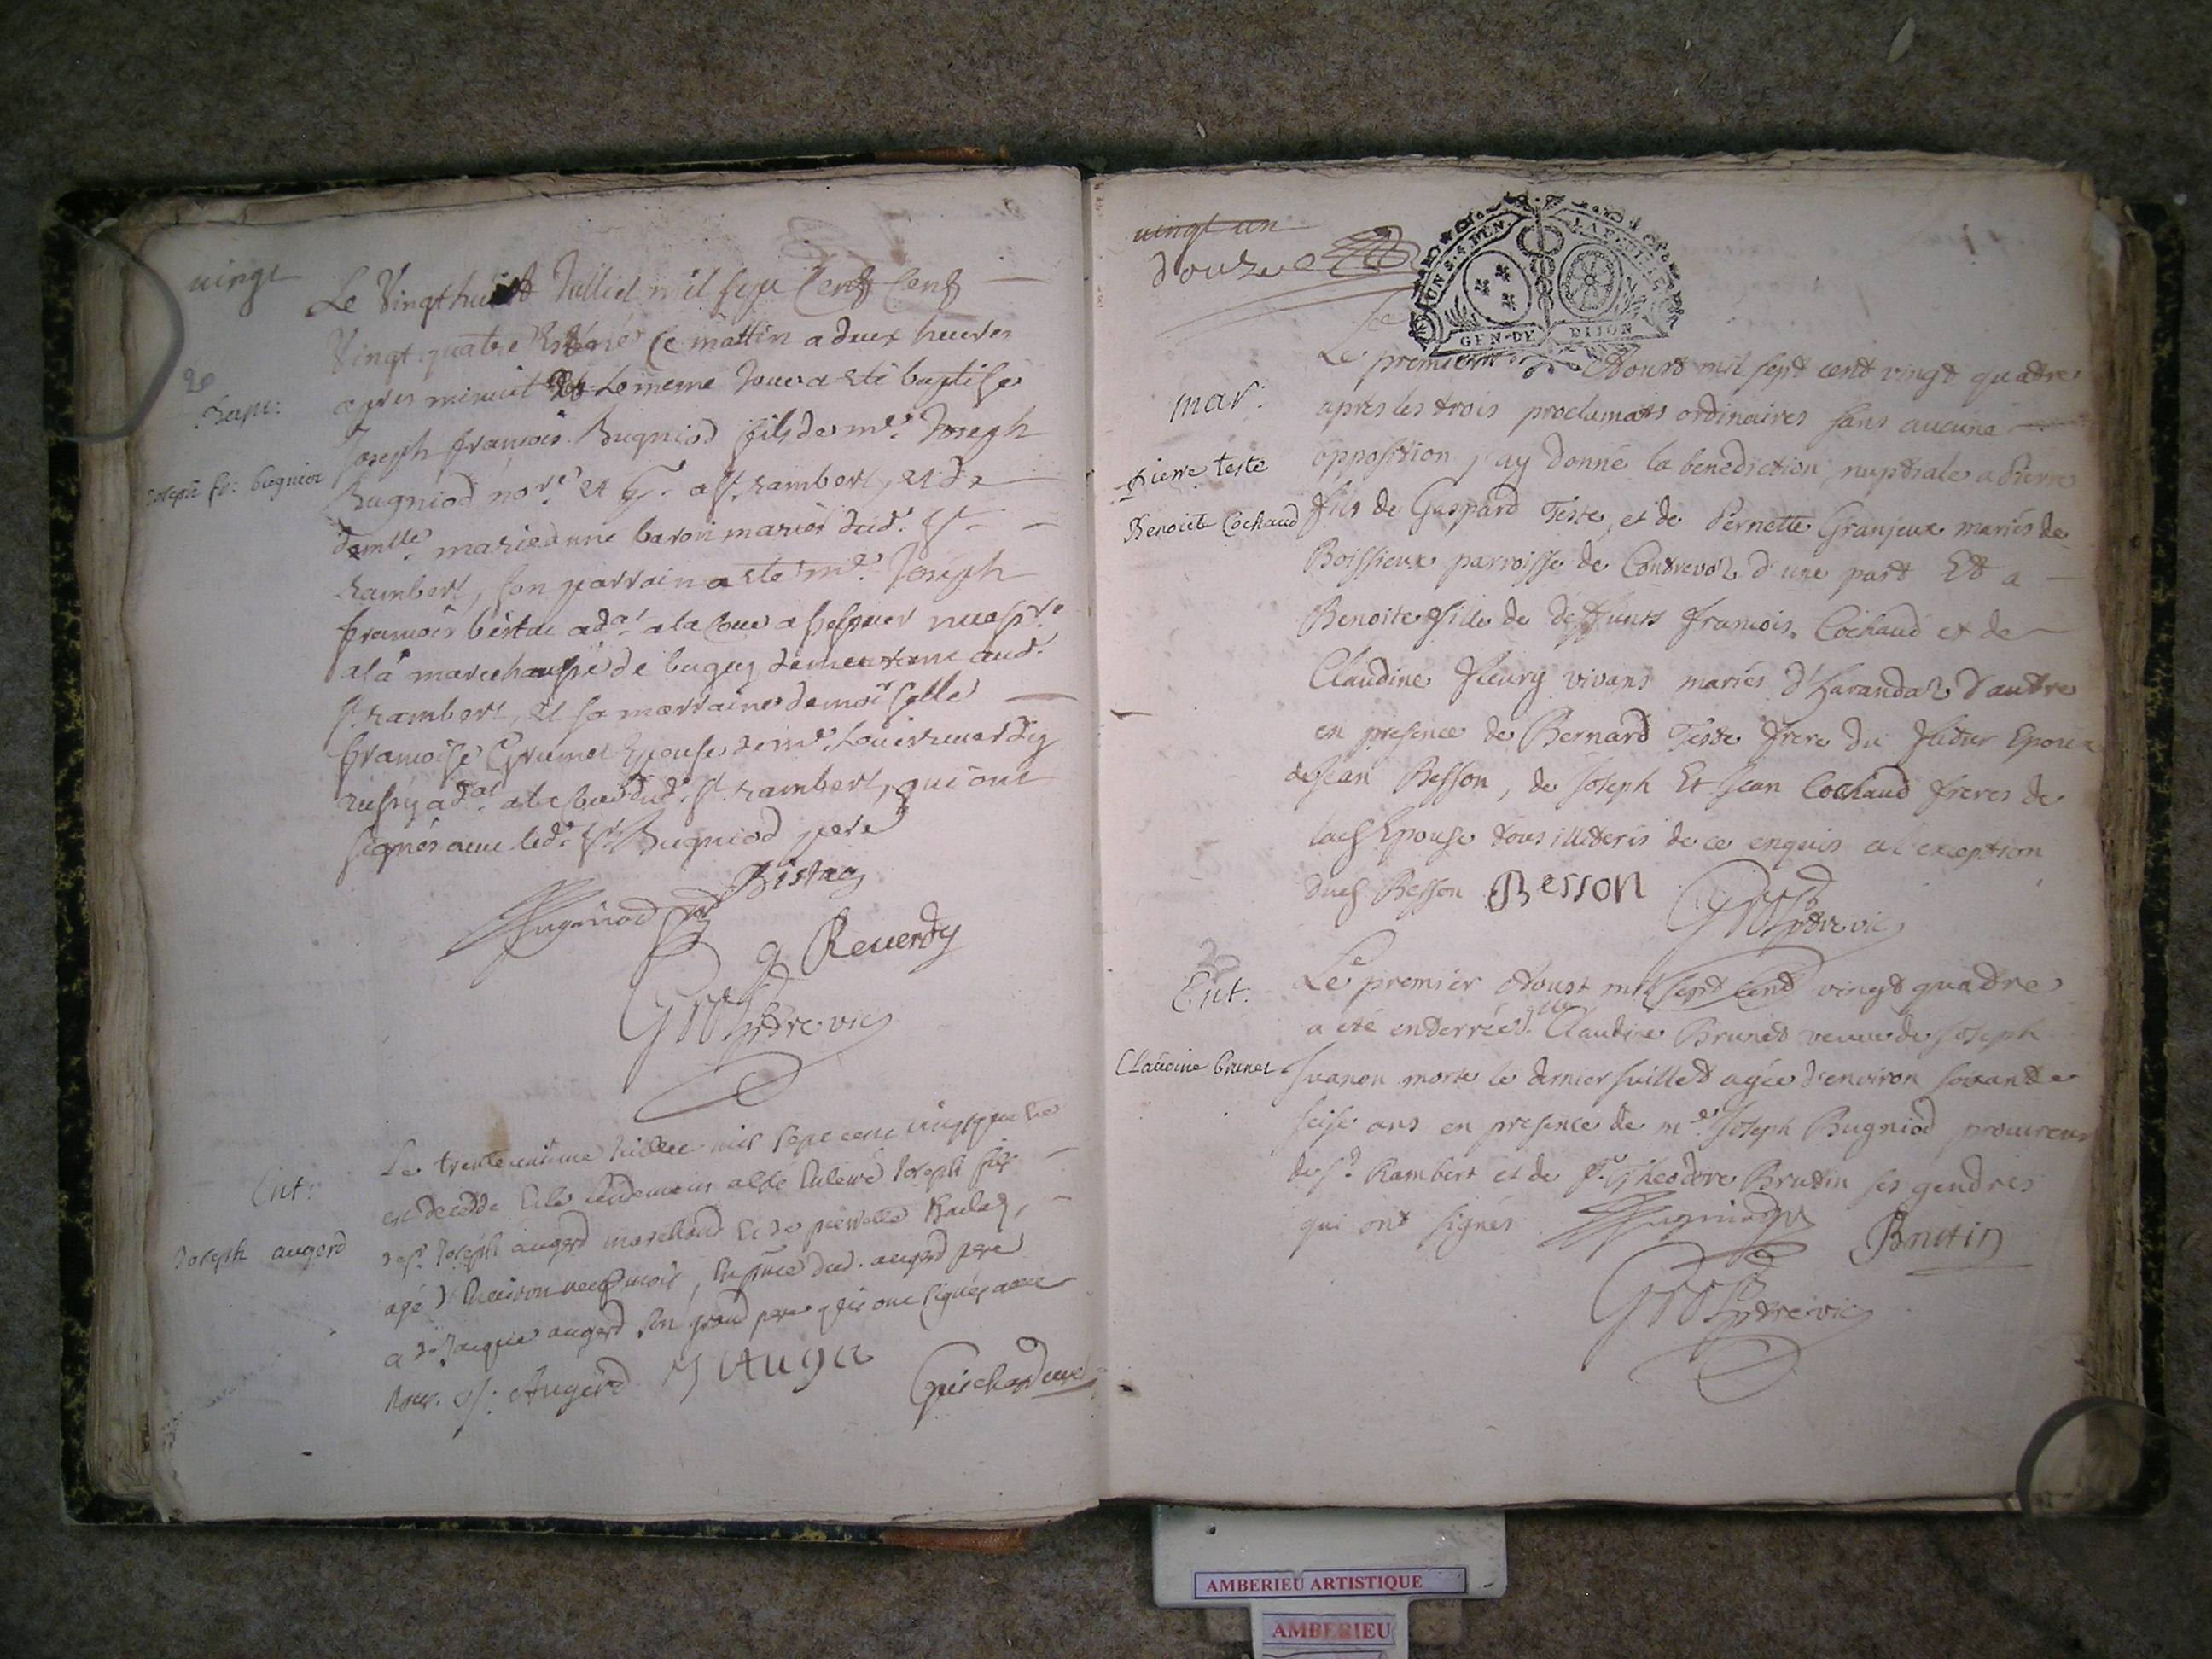 vingt
Le Vingt huit Juillet mil sept Cent Cent
Vingt quatre est né Ce mattin a deux heures
apres minuit et Le meme Jour a esté baptisé
Bapt:
Joseph françois Bugniod fils de me. Joseph
Joseph fr: bugniod
Bugniod nore. et a St. rambert, et de
demlle. marie anne baron mariés dud. St.
rambert, son parrain a esté mr. Joseph
françois bistac adat. a la Cour
a la marechaussé de bugey demeurant aud.
St. rambert, et sa marraine demoiselle
françoise Grumet Epouse de mr. Louis reverdy
adat. dud. St. rambert, qui ont
signés avec led. Sr. Bugniod pere
Bistac
Bugniod
Reverdy
Gros ptre vic
Le trente unieme Juillet mil sept cent vingt quatre
Ent:
est decedé et le lendemain a esté enterré Joseph fils
de Sr. Joseph augerd marchand et de pierrette
Joseph augerd
agé d'environ neuf mois, en presence dud. augerd pere
et de Jacque augerd son grand pere qui ont signés avec
nous. J: Augerd J Auger
Guichard curé
vingt un
douze
UN S. 4. DEN.
LA FEUILLE
GEN. DE DIJON
Le
Le premier Aoust mil sept cent vingt quatre
mar:
apres les trois proclamats ordinaires sans aucune
opposition j'ay donné la benediction nuptiale a Pierre
pierre teste
fils de Gaspard Teste, et de Pernette Granjeux mariés de
Benoite Cochaud
Boissieux parroisse de Contrevoz d'une part Et a
Benoite fille de deffunts françois Cochaud et de
Claudine fleury vivans mariés d'harandaz d'autre
en presence de Bernard Teste frere du futur Epoux
de Jean Besson, de Joseph Et Jean Cochaud freres de
lad Epouse tous illiteris de ce enquis a l'exception
dud Besson Besson
Gros ptre vic
Ent.
Le premier Aoust mil sept cent vingt quatre
a eté enterrée dlle Claudine Brunet veuve de Joseph
Claudine brunet
Juanon morte le dernier Juillet agée d'environ soixante
seise ans en presence de me. Joseph Bugniod procureur
de St. Rambert et de Sr. Theodore Brutin ses gendres
qui ont signés Bugniod
Brutin
Gros ptre vic
AMBERIEU ARTISTIQUE
AMBERIEU